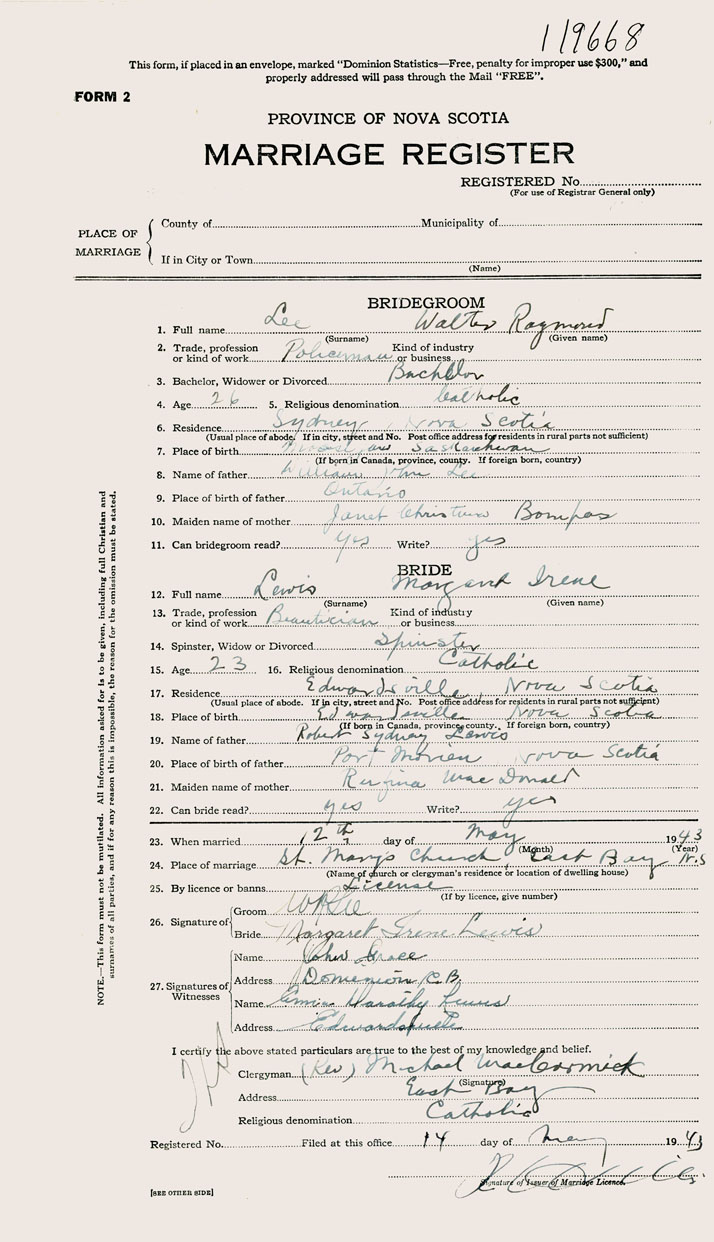 119668
This form, if placed in an envelope, marked “Dominion Statistics—Free, penalty for improper use $300,” and
properly addressed will pass through the Mail “FREE”.
FORM 2
PROVINCE OF NOVA SCOTIA
MARRIAGE REGISTER
REGISTERED No.
(For use of Registrar General only)
PLACE OF MARRIAGE
County of Municipality of
If in City or Town
(Name)
BRIDEGROOM
1. Full name Lee Walter Raymond
(Surname) (Given name)
2. Trade, profession or kind of work Policeman Kind of industry or business
3. Bachelor, Widower or Divorced Bachelor
4. Age 26 5. Religious denomination Catholic
6. Residence Sydney, Nova Scotia
(Usual place of abode. If in city, street and No. Post office address for residents in rural parts not sufficient)
7. Place of birth Moose Jaw Saskatchewan
(If born in Canada, province, county. If foreign born, country)
8. Name of father William John Lee
9. Place of birth of father Ontario
10. Maiden name of mother Janet Christina Bompas
11. Can bridegroom read? yes Write? yes
BRIDE
12. Full name Lewis Margaret Irene
(Surname) (Given name)
13. Trade, profession or kind of work Beautician Kind of industry or business
14. Spinster, Widow or Divorced Spinster
15. Age 23 16. Religious denomination Catholic
17. Residence Edwardsville, Nova Scotia
(Usual place of abode. If in city, street and No. Post office address for residents in rural parts not sufficient)
18. Place of birth Edwardsville Nova Scotia
(If born in Canada, province, county. If foreign born, country)
19. Name of father Robert Sydney Lewis
20. Place of birth of father Port Morien Nova Scotia
21. Maiden name of mother Rufina MacDonald
22. Can bride read? yes Write? yes
23. When married 12th day of May 1943
(Month) (Year)
24. Place of marriage St. Mary's Church, East Bay, N.S
(Name of church or clergyman's residence or location of dwelling house)
25. By licence or banns License
(If by licence, give number)
26. Signature of
Groom W R Lee
Bride Margaret Irene Lewis
27. Signatures of Witnesses
Name John Grace
Address Dominion C.B.
Name Dorathy Lewis
Address Edwardsville
I certify the above stated particulars are true to the best of my knowledge and belief.
Clergyman (Rev) Michael MacCormick
(Signature)
Address East Bay
Religious denomination Catholic
Registered No. Filed at this office 14 day of May 1943
Signature of Issuer of Marriage Licence.
[SEE OTHER SIDE]
NOTE.—This form must not be mutilated. All information asked for is to be given, including full Christian and
surnames of all parties, and if for any reason this is impossible, the reason for the omission must be stated.